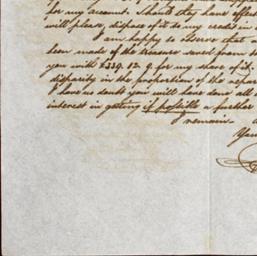 for my account. Should they have effect
will please, dispose of it to my credit in
I am happy to observe that
been made of the treasure saved from
you with £339. 12. 9. for my share of it.
disparity in the proportion of the
I have no doubt you will have done all
interest in getting if possible a further
I remain
You